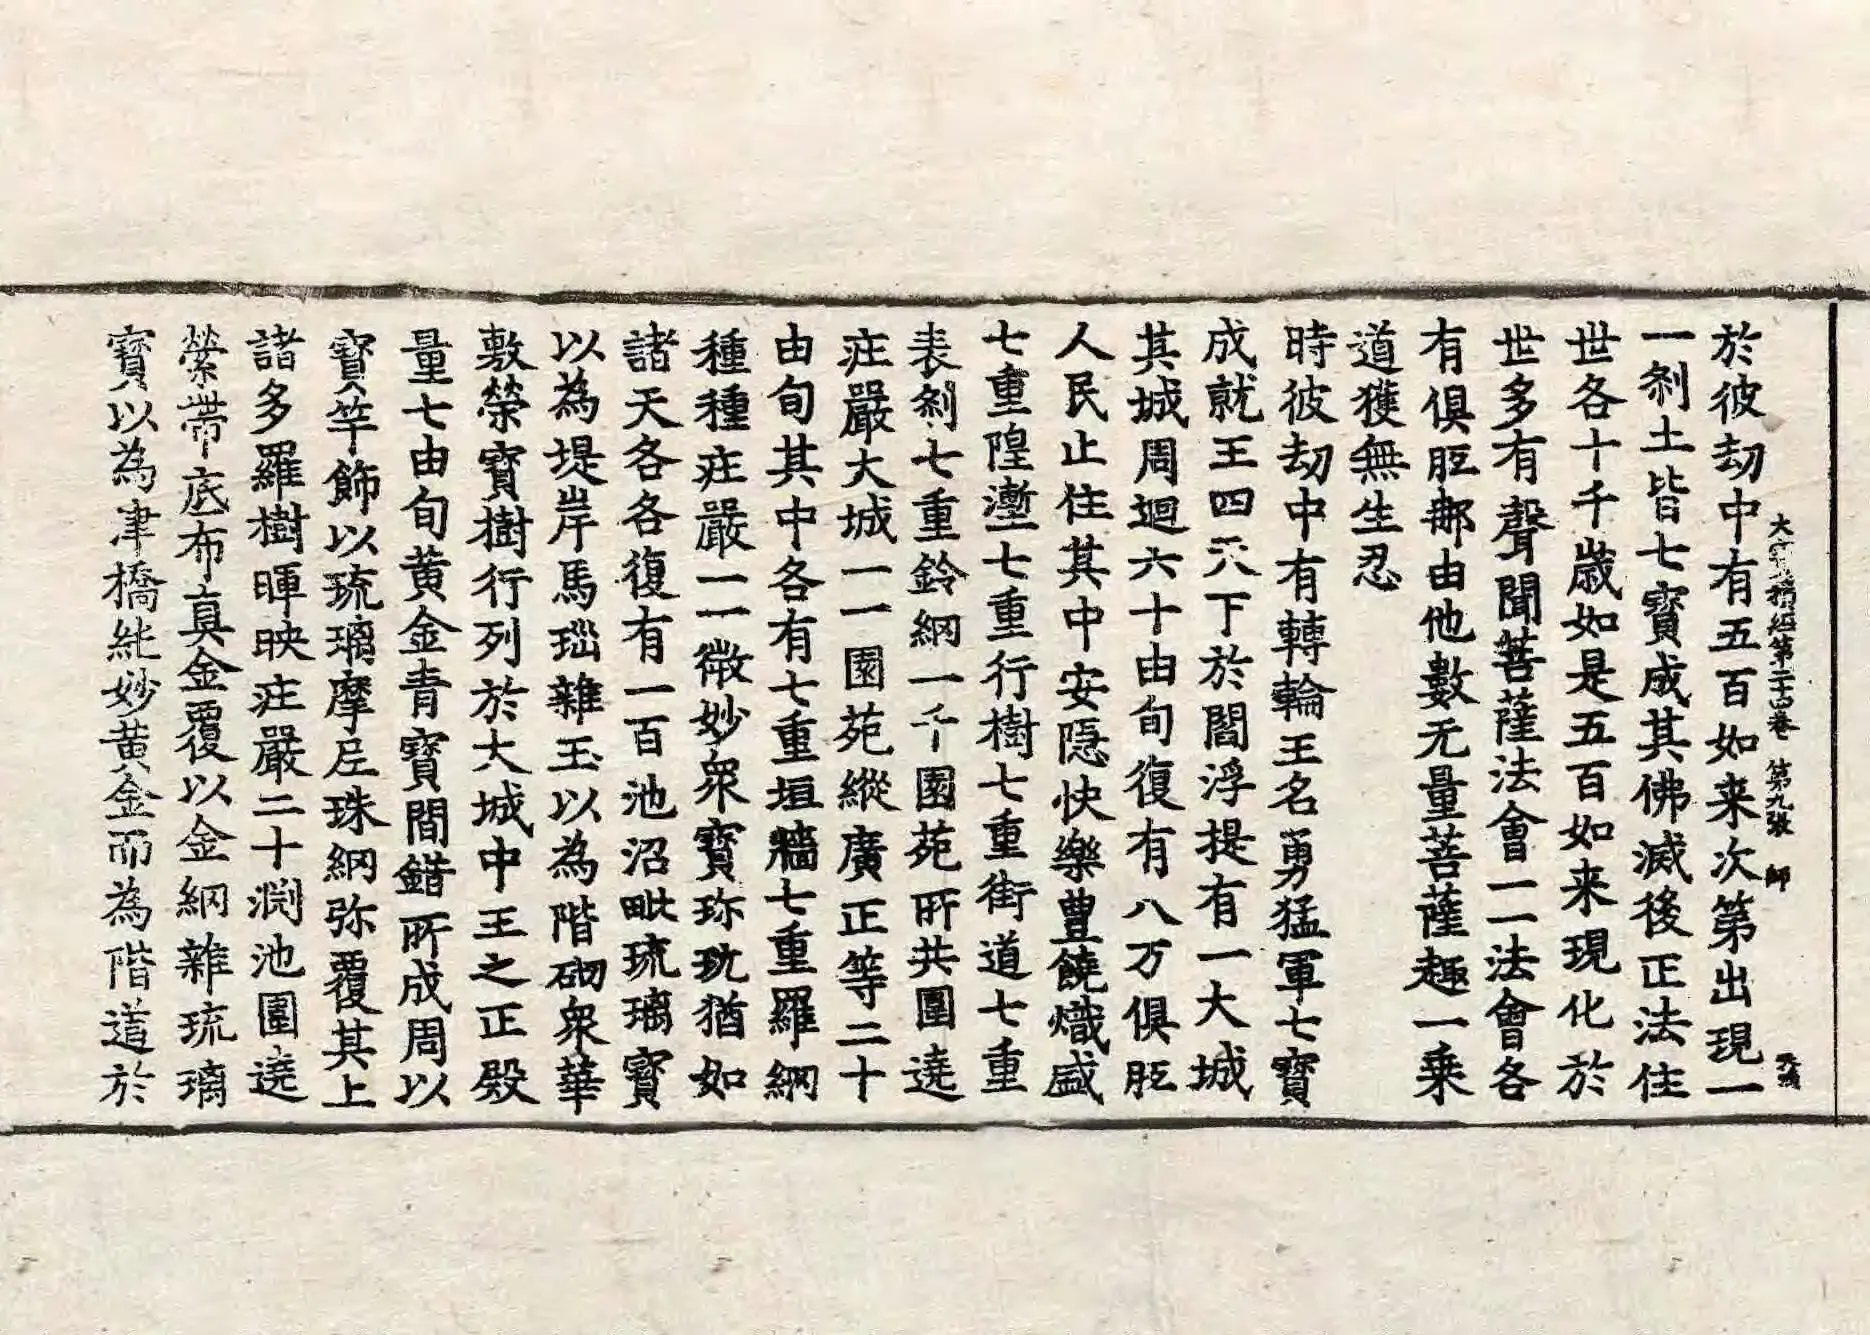 大寶積經第二十四卷 第九張 師
於彼劫中有五百如来次第出現一
一剎土皆七寶成其佛滅後正法住
世各十千歲如是五百如来現化於
世多有聲聞菩薩法會一一法會各
有俱胝那由他數无量菩薩趣一乗
道獲無生忍
時彼劫中有轉輪王名勇猛軍七寶
成就王四天下於閻浮提有一大城
其城周迴六十由旬復有八万俱胝
人民止住其中安隱快樂豊饒熾盛
七重隍壍七重行樹七重街道七重
表剎七重鈴網一千園苑所共圍遶
莊嚴大城一一園苑縱廣正等二十
由旬其中各有七重垣牆七重羅網
種種莊嚴一一微妙衆寶珎玩猶如
諸天各各復有一百池沼毗琉璃寶
以為堤岸馬瑙雜玉以為階砌衆華
敷榮寶樹行列於大城中王之正殿
量七由旬黄金青寶間錯所成周以
寶竿飾以琉璃摩尼珠網弥覆其上
諸多羅樹暉映莊嚴二十淵池圍遶
縈帶底布真金覆以金網雜琉璃
寶以為津橋紕妙黄金而為階道於